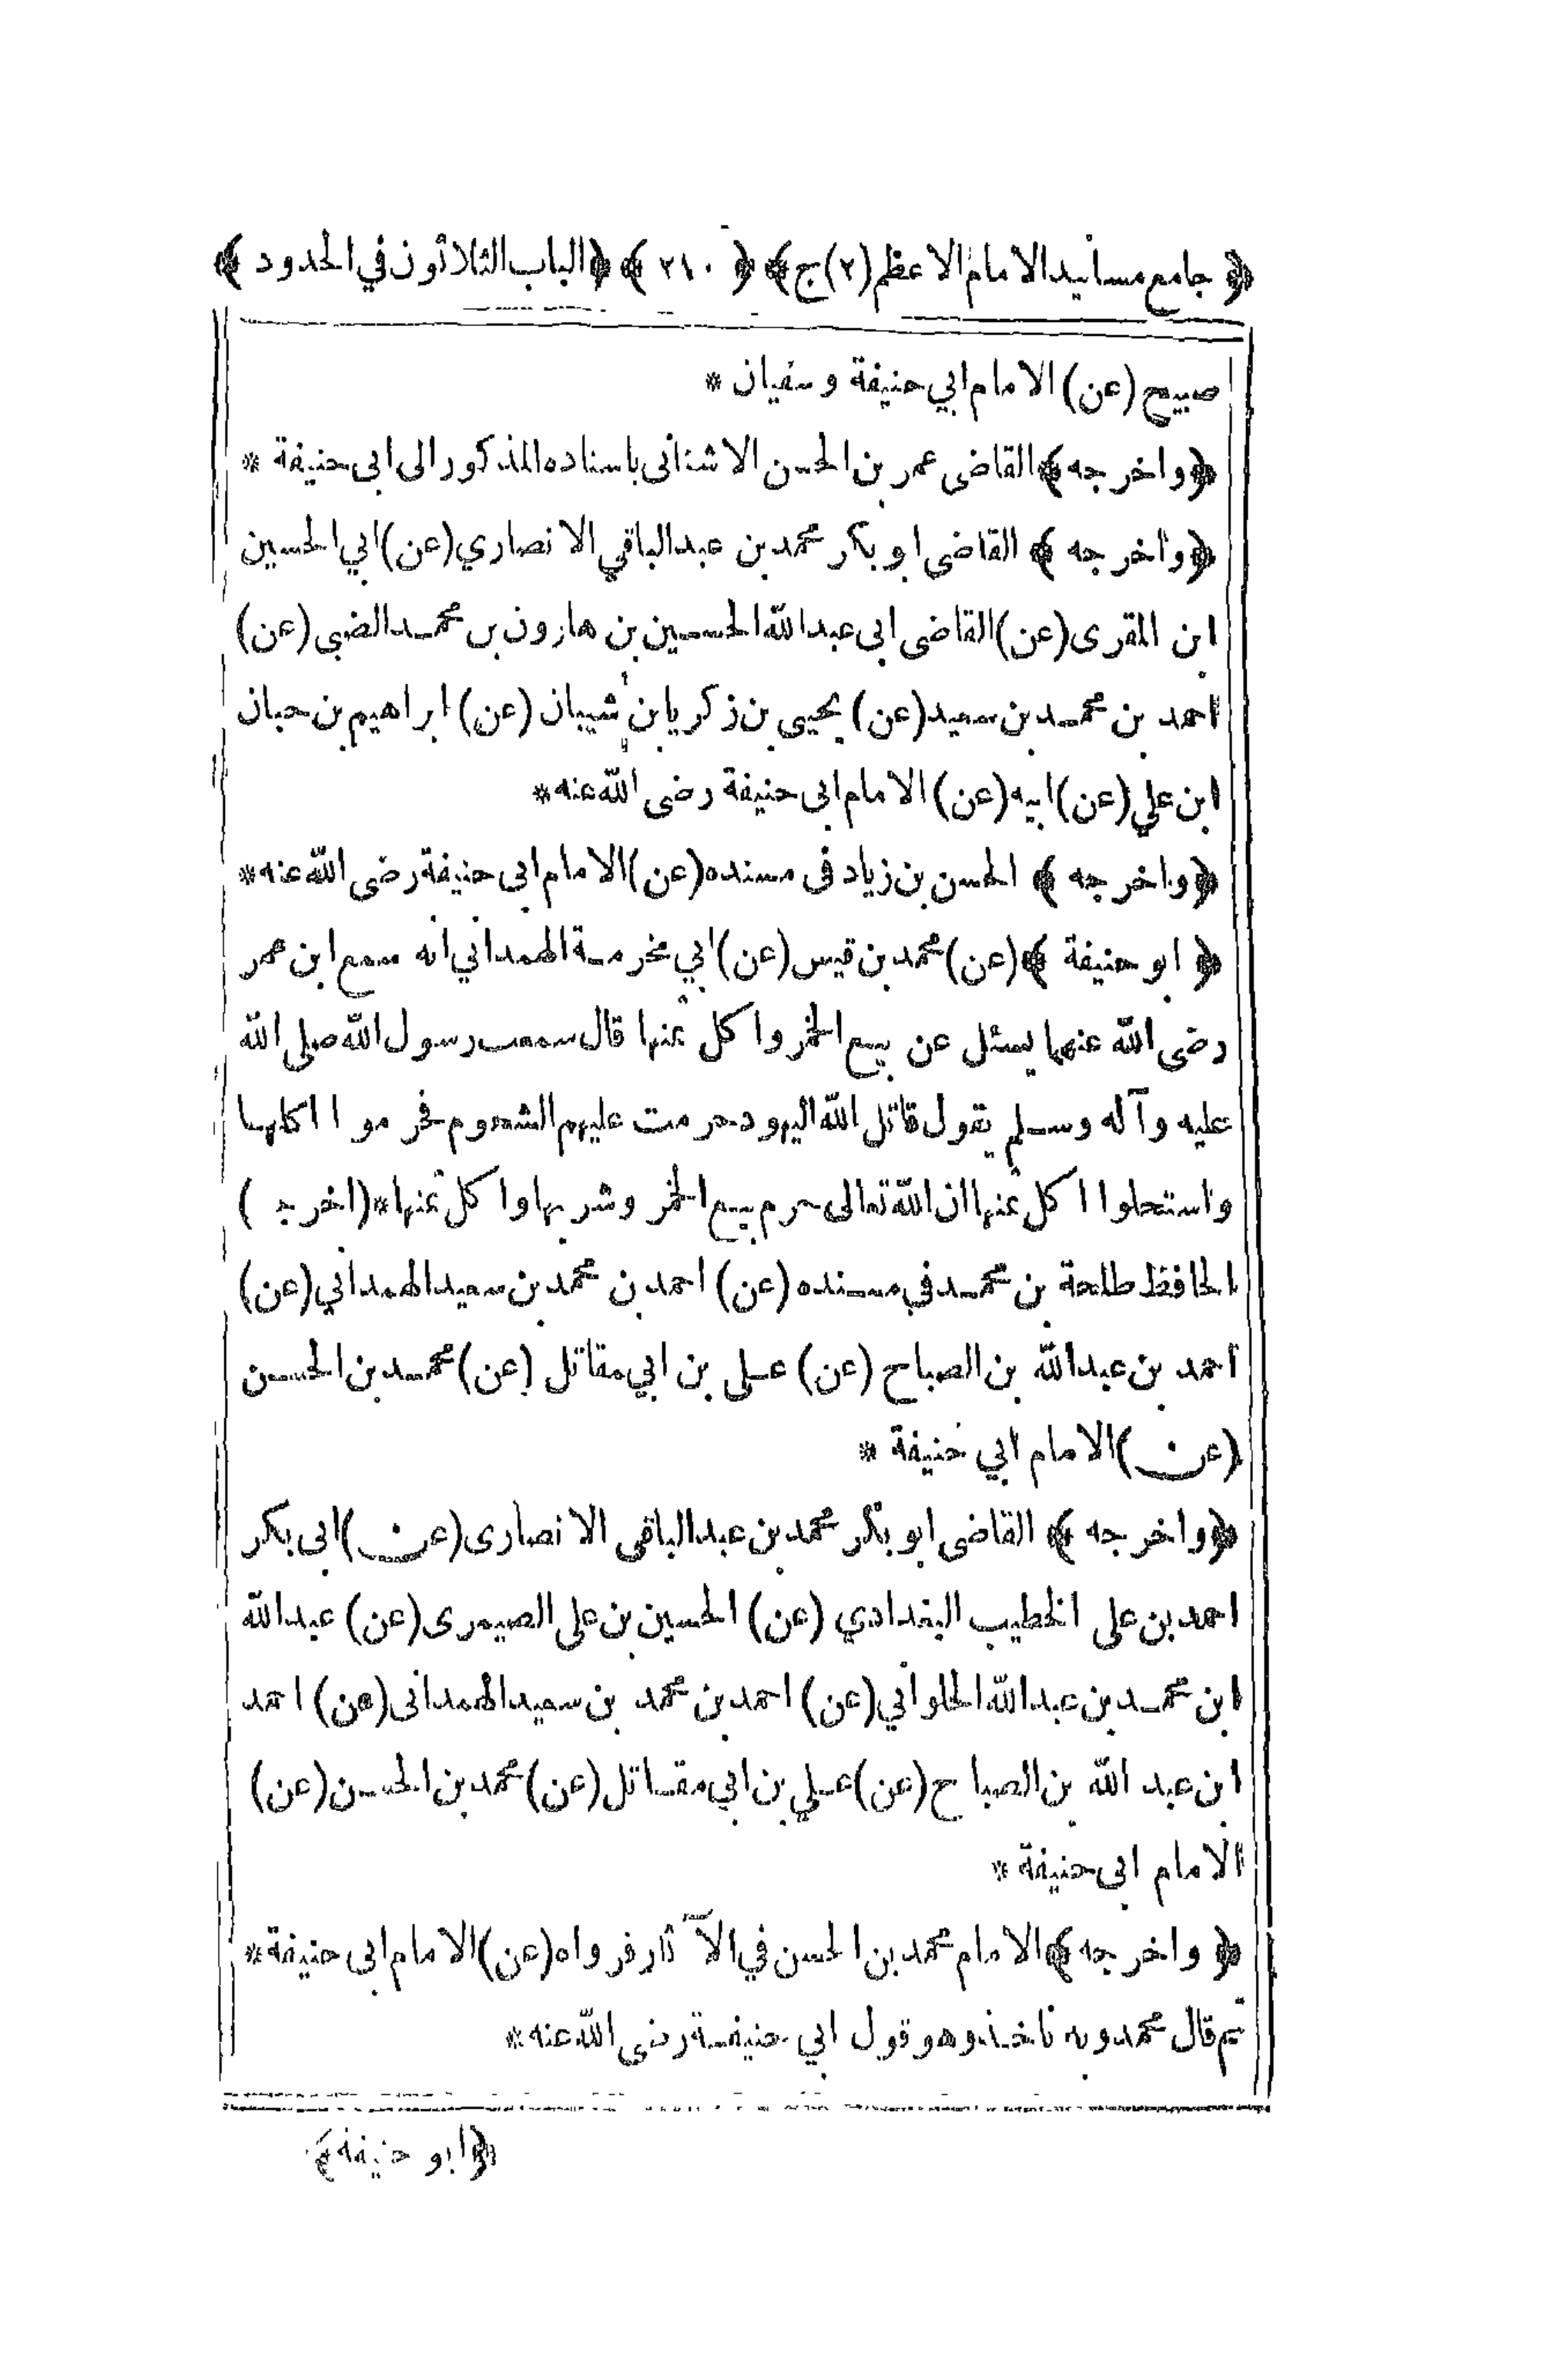 ﴿ جامع مسانيد الامام الاعظم (٢) ج ﴾ ﴿ ٢١٠ ﴾ ﴿ الباب الثلاثون في الحدود ﴾
صبيح (عن) الامام ابي حنيفة و سفيان *
﴿ واخرجه ﴾ القاضى عمر بن الحسن الاشنانى باسناده المذكور الى ابى حنيفة *
﴿ واخرجه ﴾ القاضى ابو بكر محمد بن عبد الباقي الانصاري (عن) ابي الحسين
ابن المقرى (عن) القاضى ابى عبد الله الحسين بن هارون بن محمد الضبى (عن)
احمد بن محمد بن سعيد (عن) يحيى بن زكريا بن شيبان (عن) ابراهيم بن حبان
ابن علي (عن) ابيه (عن) الامام ابى حنيفة رضى الله عنه *
﴿ واخرجه ﴾ الحسن بن زياد فى مسنده (عن) الامام ابى حنيفة رضى الله عنه *
﴿ ابو حنيفة ﴾ (عن) محمد بن قيس (عن) ابي مخرمة الهمداني انه سمع ابن عمر
رضى الله عنهما يسئل عن بيع الخمر واكل ثمنها قال سمعت رسول الله صلى الله
عليه وآله وسلم يقول قاتل الله اليهود حرمت عليهم الشحوم فحرموا اكلها
واستحلوا اكل ثمنها ان الله تعالى حرم بيع الخمر وشربها واكل ثمنها * (اخرجه)
الحافظ طلحة بن محمد في مسنده (عن) احمد بن محمد بن سعيد الهمداني (عن)
احمد بن عبد الله بن الصباح (عن) على بن ابي مقاتل (عن) محمد بن الحسن
(عن) الامام ابي حنيفة *
﴿ واخرجه ﴾ القاضى ابو بكر محمد بن عبد الباقى الانصارى (عن) ابى بكر
احمد بن على الخطيب البغدادي (عن) الحسين بن على الصيمرى (عن) عبد الله
ابن محمد بن عبد الله الحلواني (عن) احمد بن محمد بن سعيد الهمدانى (عن) احمد
ابن عبد الله بن الصباح (عن) علي بن ابي مقاتل (عن) محمد بن الحسن (عن)
الامام ابى حنيفة *
﴿ واخرجه ﴾ الامام محمد بن الحسن في الآثار فرواه (عن) الامام ابى حنيفة *
ثم قال محمد وبه ناخذ وهو قول ابي حنيفة رضى الله عنه *
﴿ ابو حنيفة ﴾